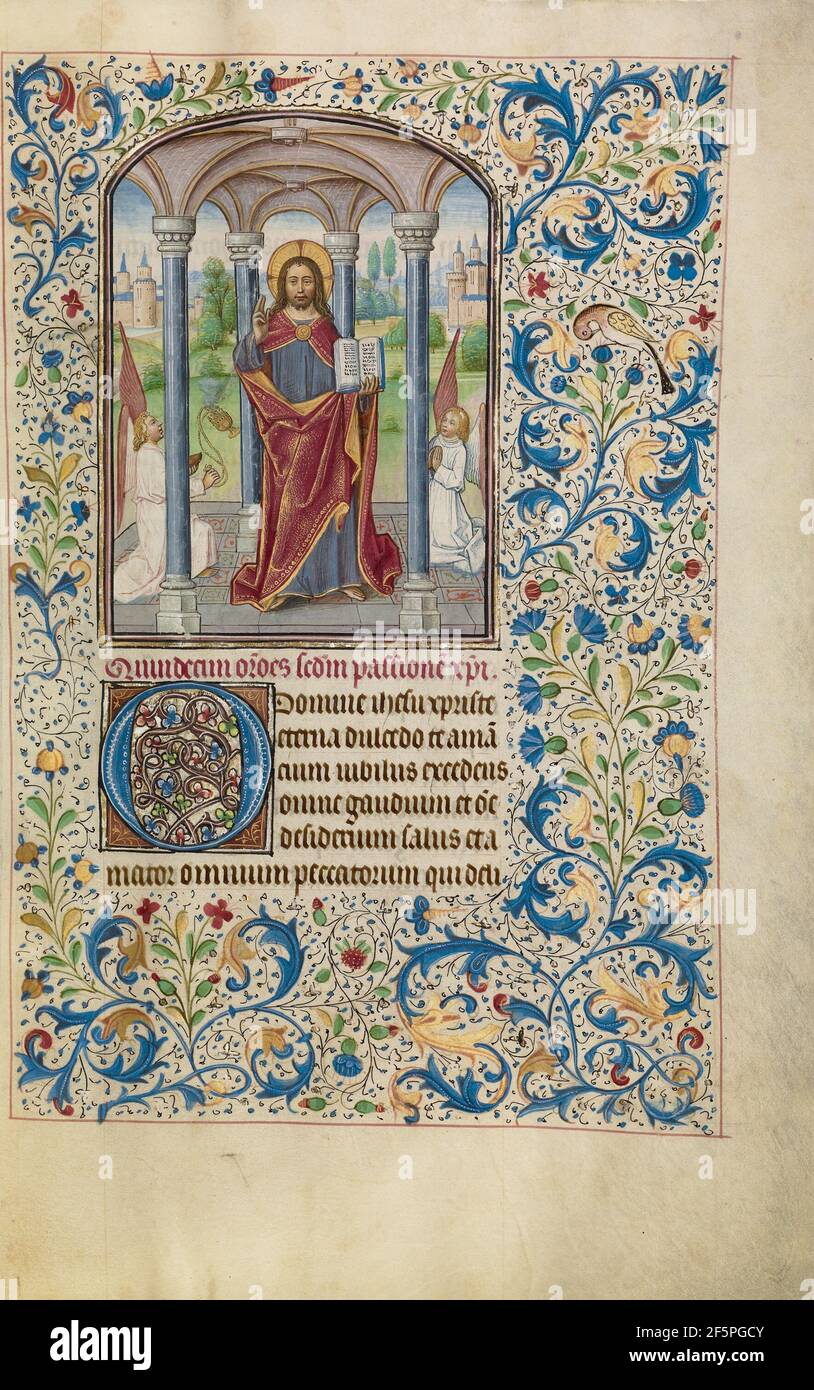 Quindecim or̄oes sc̄dm passionē xp̄i.
O Domine ihesu xpriste
eterna dulcedo et amā
cium iubilus excedens
omne gaudium et ōe
desiderium salus et a
mator omnium peccatorum qui deli
alamy
Image ID: 2F5PGCY
www.alamy.com